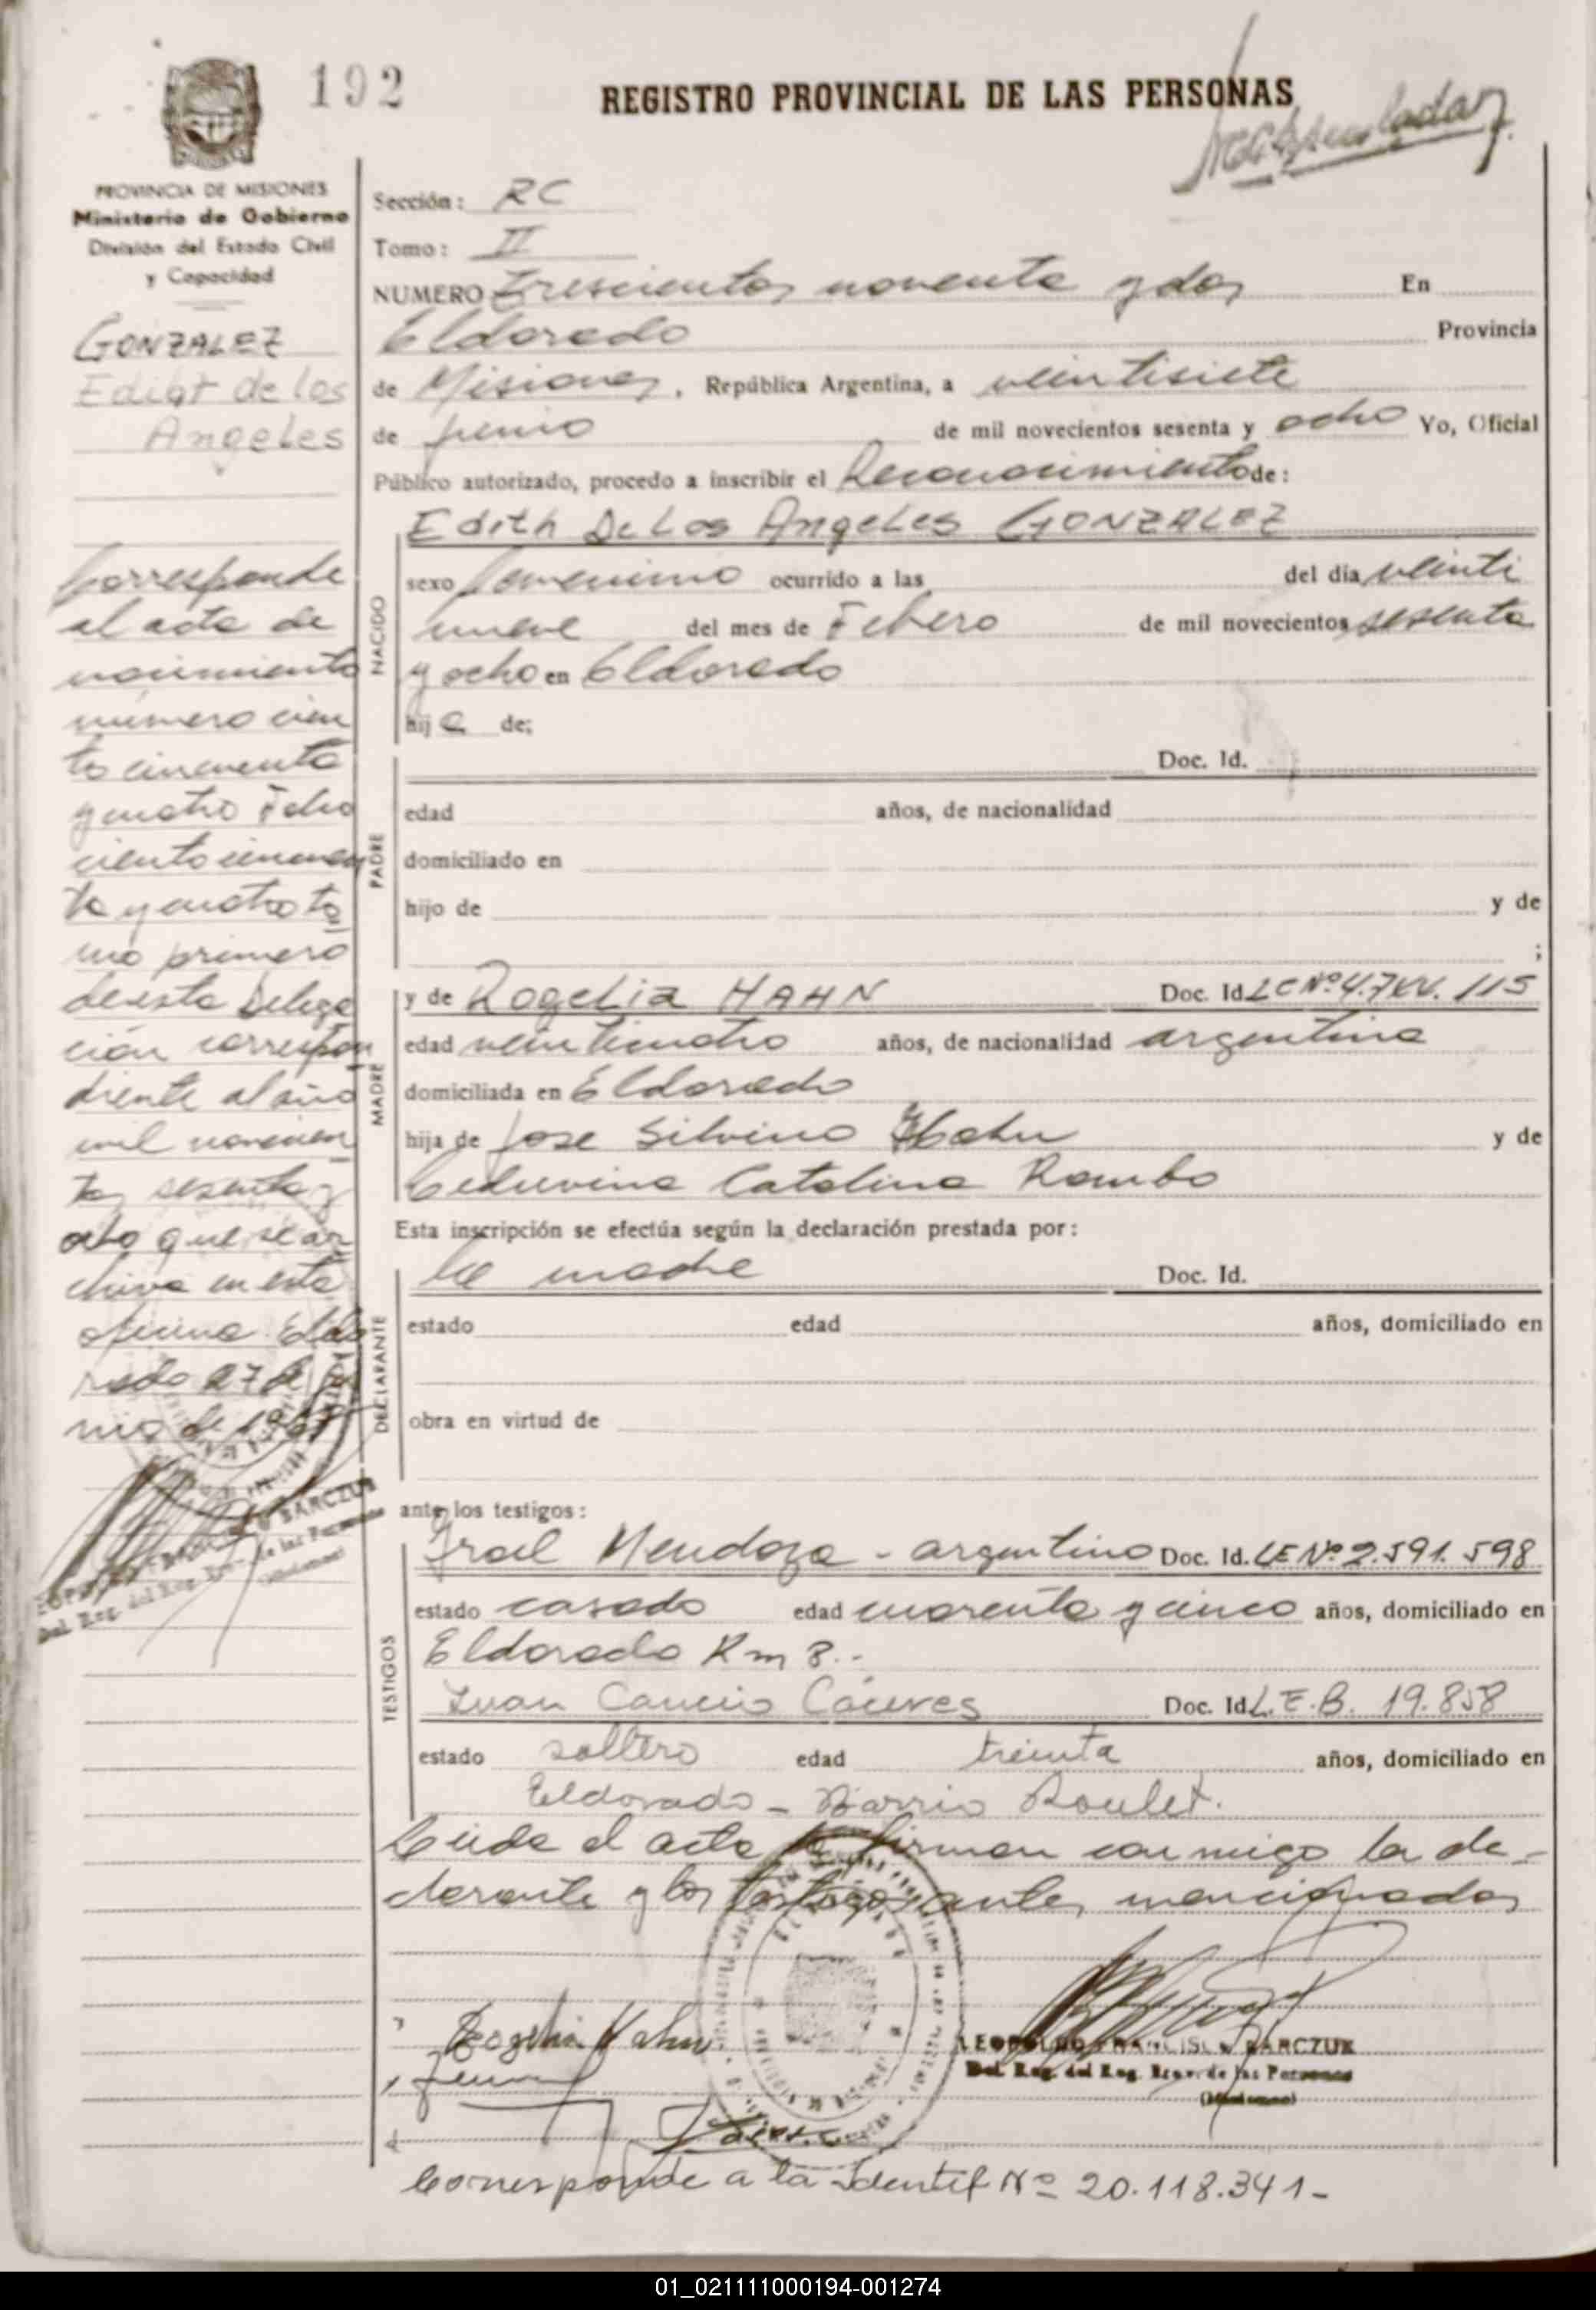 192
REGISTRO PROVINCIAL DE LAS PERSONAS
PROVINCIA DE MISIONES
Ministerio de Gobierno
División del Estado Civil
y Capacidad
GONZALEZ
Edict de los
Angeles
Corresponde
al acta de
nacimiento
número cien
to cincuenta
y cuatro Folio
ciento cincuen
ta y cuatro to
mo primero
de esta Delega
ción correspon
diente al año
mil novecien
tos sesenta y
ocho que se ar
chiva en esta
oficina Eldo
rado 27 de ju
nio de 1968
Sección: RC
Tomo: II
NUMERO Trescientos noventa y dos En
Eldorado Provincia
de Misiones, República Argentina, a veintisiete
de junio de mil novecientos sesenta y ocho Yo, Oficial
Público autorizado, procedo a inscribir el Reconocimiento de:
NACIDO
Edith De Los Angeles GONZALEZ
sexo femenino ocurrido a las del día veinti
nueve del mes de Febero de mil novecientos sesenta
y ocho en Eldorado
hija de;
PADRE
Doc. Id.
edad años, de nacionalidad
domiciliado en
hijo de y de
;
MADRE
y de Rogelia HAHN Doc. Id. LC Nº 4.7 115
edad veinticuatro años, de nacionalidad argentina
domiciliada en Eldorado
hija de Jose Silvino Hahn y de
Catalina Rambo
Esta inscripción se efectúa según la declaración prestada por:
DECLARANTE
la madre Doc. Id.
estado edad años, domiciliado en
obra en virtud de
ante los testigos:
TESTIGOS
Irael Mendoza - argentino Doc. Id. LE Nº 2.591.598
estado casado edad cuarenta y cinco años, domiciliado en
Eldorado Km 8.-
Juan Cancio Cáceres Doc. Id. L.E.B. 19.858
estado soltero edad treinta años, domiciliado en
Eldorado - Barrio Roulet.
Leida el acta la firman conmigo la de-
clarante y los testigos antes mencionados
Rogelia Hahn
LEOPOLDO FRANCISCO BARCZUK
Del. Reg. del Reg. Prov. de las Personas
(Misiones)
Corresponde a la Identif Nº 20.118.341-
01_021111000194-001274